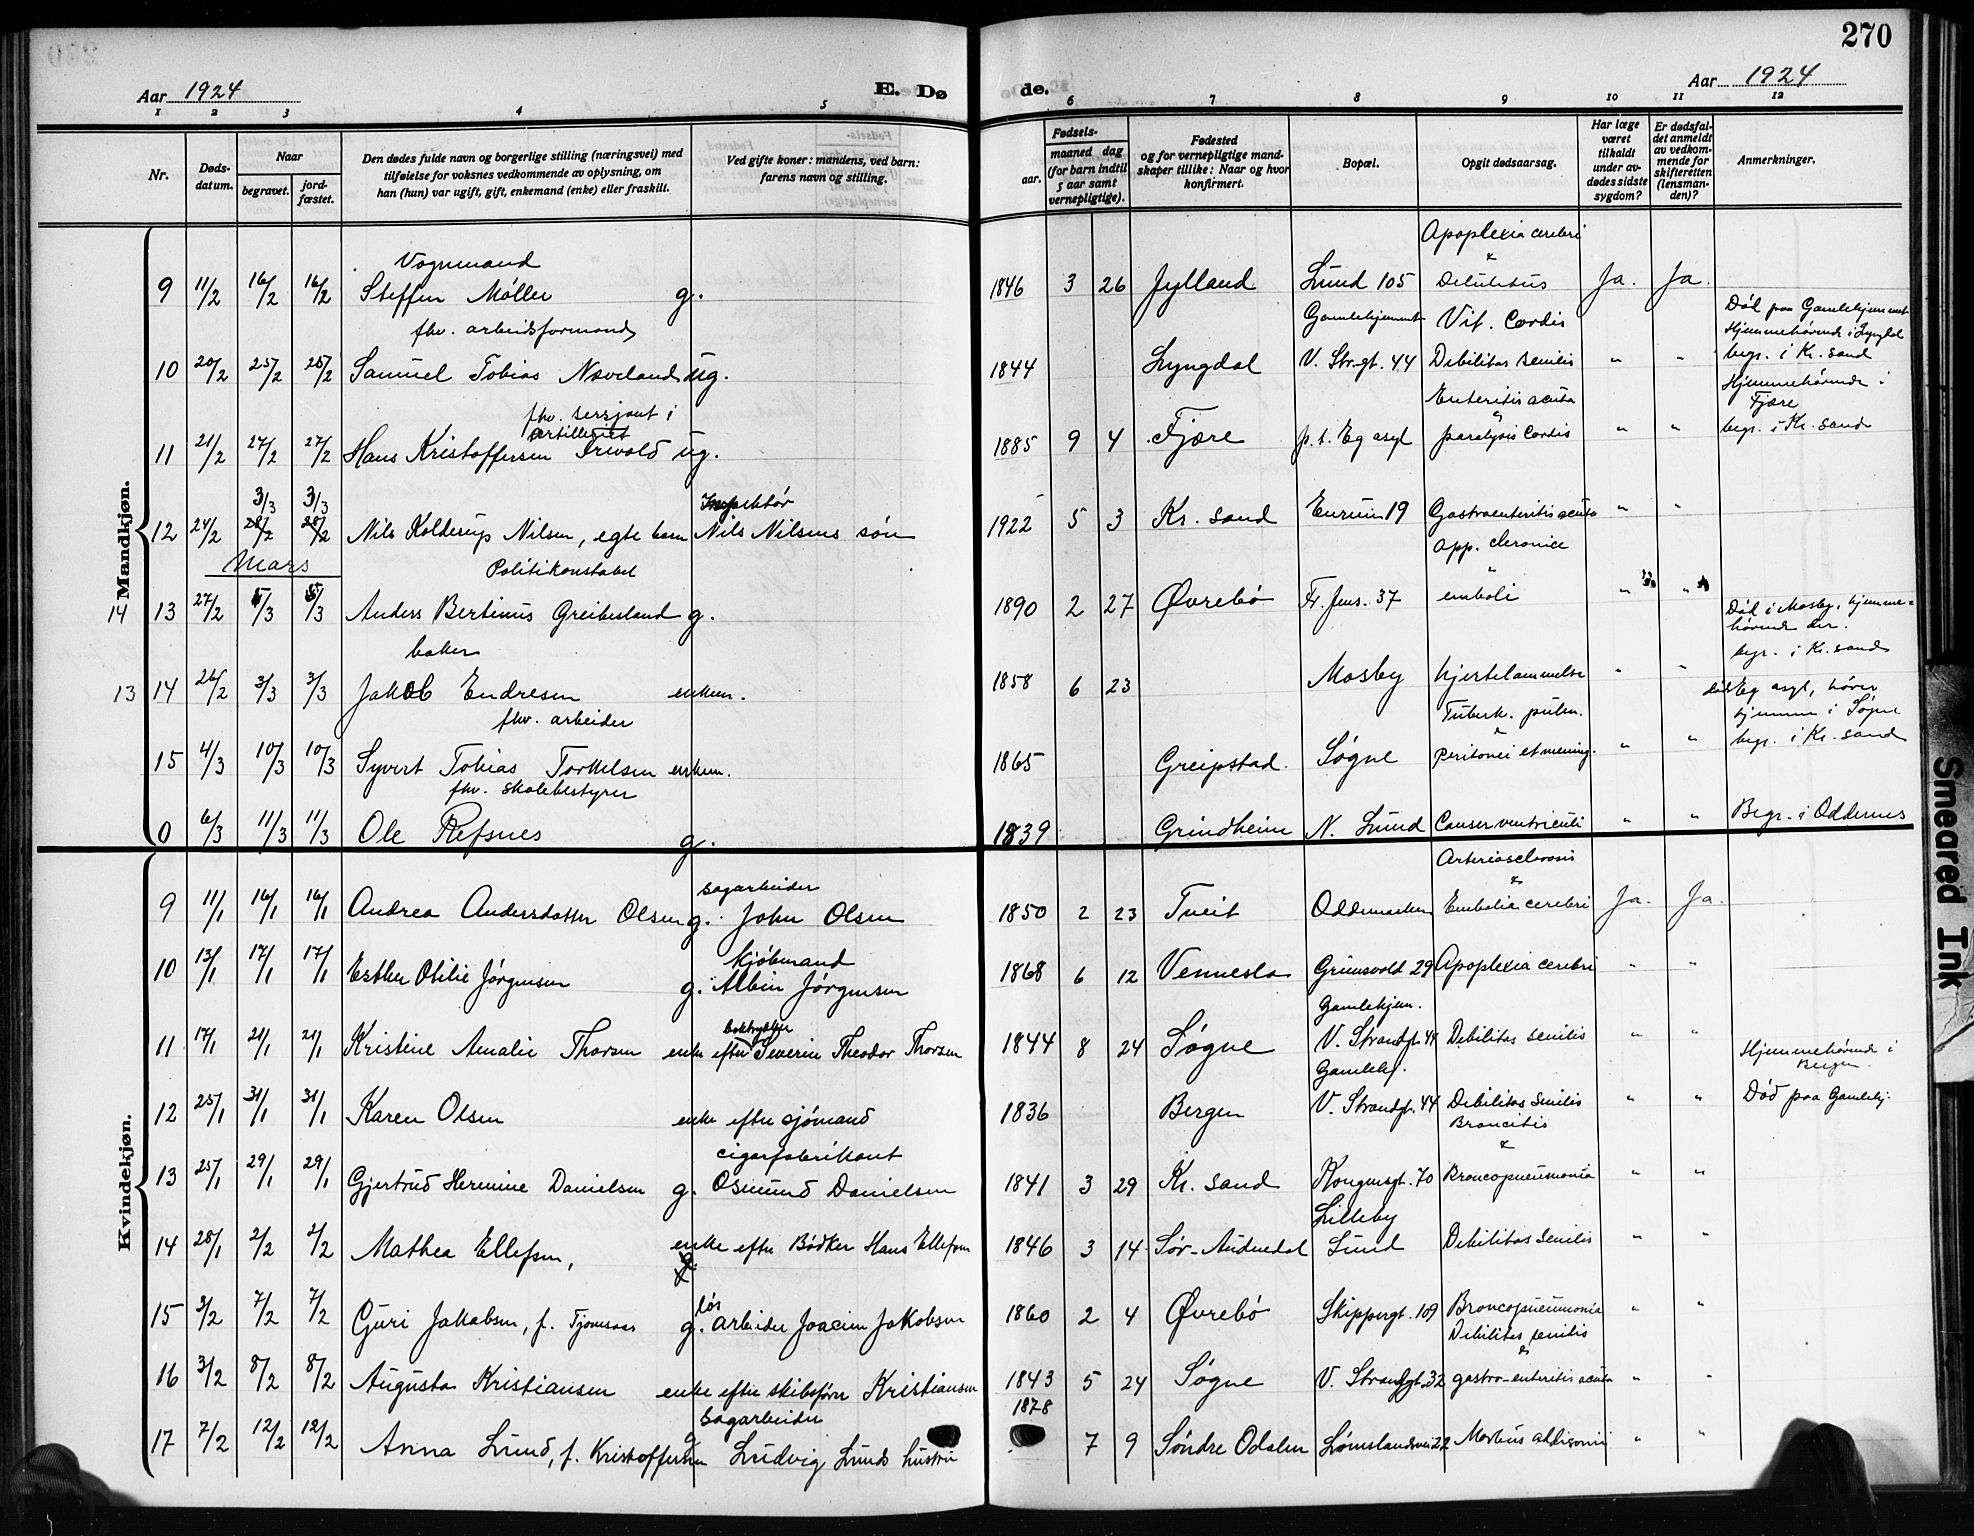 270
Aar 1924
E. Dø
de.
Aar 1924
1 2 3 4 5 6 7 8 9 10 11 12
Nr.
Døds-
datum.
Naar
begravet.
jord-
fæstet.
Den dødes fulde navn og borgerlige stilling (næringsvei) med
tilføielse for voksnes vedkommende av oplysning, om
han (hun) var ugift, gift, enkemand (enke) eller fraskilt.
Ved gifte koner: mandens, ved barn:
farens navn og stilling.
Fødsels-
aar.
maaned dag
(for barn indtil
5 aar samt
vernepligtige).
Fødested
og for vernepligtige mand-
skaper tillike: Naar og hvor
konfirmert.
Bopæl.
Opgit dødsaarsag.
Har læge
været
tilkaldt
under av-
dødes sidste
sygdom?
Er dødsfal-
det anmeldt
av vedkom-
mende for
skifteretten
(lensman-
den)?
Anmerkninger.
Mandkjøn.
Vognmand
Apoplexia cerebri
&
9 11/2 16/2 16/2 Steffen Møller g. 1846 3 26 Jylland Lund 105 Ja. Ja.
fhv. arbeidsformand
Gamlehjemmet Vit. Cordis
Død paa Gamlehjemmet
Hjemmehørende i Lyngdal
10 20/2 25/2 25/2 Samuel Tobias Naveland ug. 1844 Lyngdal V. Str.gt. 44 Debilitas senilis " " begr. i Kr. sand
fhv. sersjant i
artilleriet
Enteritis acuta
Hjemmehørende i
Fjære
11 21/2 27/2 27/2 Hans Kristoffersen ug. 1885 9 4 Fjære p.t. Eg asyl paralysis Cordis " " begr. i Kr. sand
3/3 3/3
12 24/2 28/2 28/2 Nils Kolderup Nilsen, egte barn Nils Nilsens søn 1922 5 3 Kr. sand 19 Gastroenteritis acuta " "
Mars
Politikonstabel
App. chronica
14 13 27/2 5/3 5/3 Anders Bertinus Greibesland g. 1890 2 27 Øvrebø Fr. Jens. 37 emboli " "
baker
Død i Mosby, hjemme-
hørende der.
begr. i Kr. sand
13 14 26/2 3/3 3/3 Jakob Endresen enkem. 1858 6 23 Mosby hjertelammelse " "
fhv. arbeider
Tuberk. pulm.
død Eg asyl, hører
hjemme i Søgne
15 4/3 10/3 10/3 Syvert Tobias Torkelsen enkem. 1865 Greipstad Søgne peritonei et mening. " " begr. i Kr. sand
fhv. skolebestyrer
0 6/3 11/3 11/3 Ole Refsnes g. 1839 Grindheim N. Lund Canser ventriculi " " Begr. i Oddernes
Kvindekjøn.
sagarbeider
Arteriosclerosis
&
9 11/1 16/1 16/1 Andrea Andersdatter Olsen g. John Olsen 1850 2 23 Tveit Oddemarken Embolia cerebri Ja. Ja.
kjøbmand
10 13/1 17/1 17/1 Esther Otilie Jørgensen g. Albin Jørgensen 1868 6 12 Vennesla Grimsvold 29 Apoplexia cerebri " "
boktrykker
Gamlehjem.
11 17/1 21/1 21/1 Kristine Amalie Thorsen enke efter Severin Theodor Thorsen 1844 8 24 Søgne V. Strandgt. 44 Debilitas senilis " "
Gamlehj.
Hjemmehørende i
Bergen
12 25/1 31/1 31/1 Karen Olsen enke efter sjømand 1836 Bergen V. Strandgt. 44 Debilitas senilis " " Død paa Gamlehj.
cigarfabrikant
Broncitis
&
13 25/1 29/1 29/1 Gjertrud Hermine Danielsen g. Osmund Danielsen 1841 3 29 Kr. sand Kongensgt. 70 Broncopneumonia " "
Lilleby
14 28/1 2/2 2/2 Mathea Ellefsen, enke efter Bødker Hans Ellefsen 1846 3 14 Sør-Audnedal Lund Debilitas senilis " "
løs
15 3/2 7/2 7/2 Guri Jakobsen, f. Tjomsaas g. arbeider Joacim Jakobsen 1860 2 4 Øvrebø Skippergt. 109 Broncopneumonia " "
Debilitas senilis
&
16 3/2 8/2 8/2 Augusta Kristiansen enke efter skibsfører Kristiansen 1843 5 24 Søgne V. Strandgt. 32 gastro-enteritis acuta " "
sagarbeider
1878
17 7/2 12/2 12/2 Anna Lund, f. Kristoffersen g Ludvig Lunds hustru 7 9 Søndre Odalen Lømslandsvei 22 Morbus addisonii " "
Smeared Ink